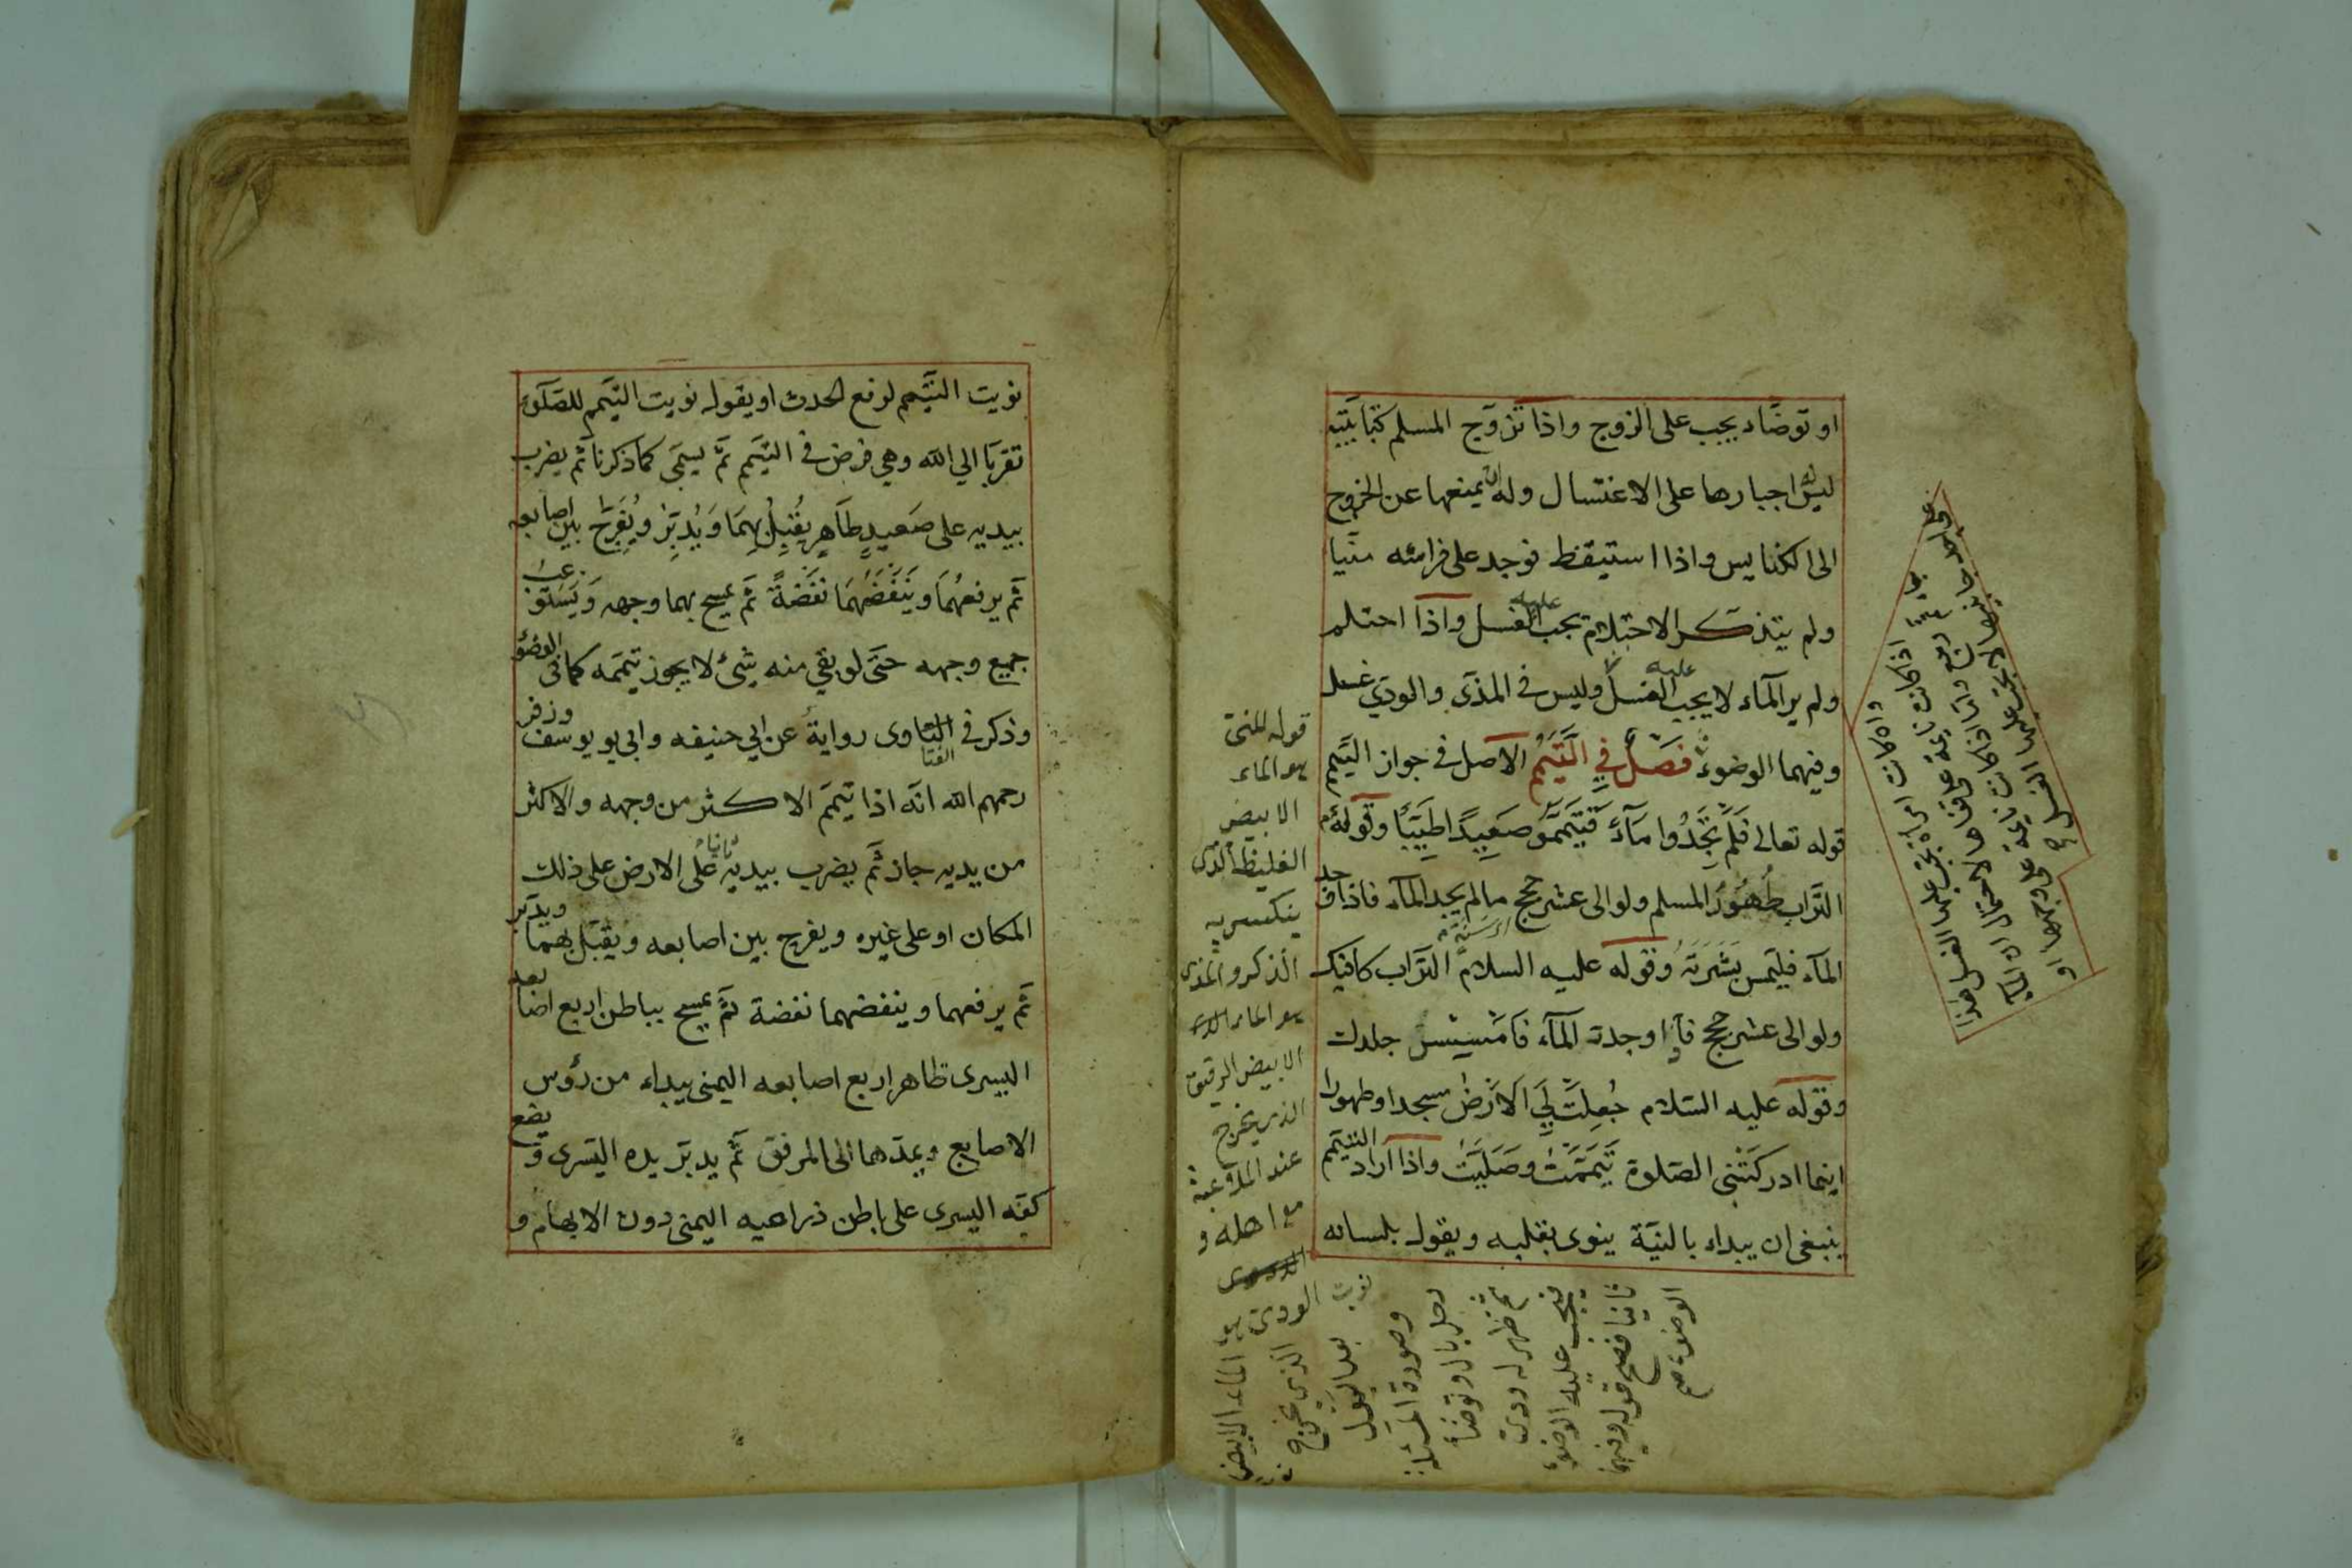 او توضاء يجب على الزوج واذا تزوج المسلم كتابيته
ليس له اجبارها على الاغتسال وله ان يمنعها عن الخروج
الى الكنايس واذا استيقظ فوجد على فراشه منيا
ولم يتذكر الاحتلام يجب عليه الغسل واذا احتلم
ولم ير المآء لا يجب عليه الغسل وليس فى المذى والودي غسل
وفيهما الوضوء فَصْلٌ فِي الَّتيَمُّمِ الاصل فى جواز التيمم
قوله تعالى فَلَمْ تَجِدُوا مَآءً فَتَيَمَّمُو صَعِيدًا طَيِّبًا وقوله
التراب طُهُورُ المسلم ولو الى عشر حجج مالم يجد المآء فاذا وجد
المآء فليمس بَشَرَتَهُ وقوله عليه السلام التراب كافيك
ولو الى عشر حجج فاذا وجدت المآء فَامْسِسْ جلدك
وقوله عليه السّلام جُعِلَتْ لِيَ الاَرْضُ مسجدا وطهورا
اينما ادركَتْنى الصّلوة تَيَمَّمْتُ وصَلَّيْتُ واذا اراد التيمم
ينبغى ان يبداء بالنيّة ينوى بقلبه ويقول بلسانه
قوله المنى
هو الماء
الابيض
الغليظ الذى
ينكسر به
الذكر والمذى
هو الماء
الابيض الرقيق
الذى يخرج
عند الملاعبة
مع اهله و
الودى هو الماء الابيض
الذى يخرج
بعد البول
وصورة المسئلة
رجل بال وتوضأ
ثم ظهر له ودى
فيجب عليه الوضوء
ثانيا فصح قوله وفيهما
الوضوء صح
نويت التيّمم لرفع الحدث او يقول نويت التيمم للصّلوة
تقربًا الي الله وهي فرض فى التيمم ثمّ يسمّى كما ذكرنا ثم يضرب
بيديه على صَعيدٍ طَاهِرٍ يُقْبِلُ بِهِمَا وَيُدْبِرُ ويُفَرِّجُ بين اصابعه
ثم يرفعهُمَا وَيَنْفُضُهُمَا نَفْضَةً ثم يمسح بهما وجهه وَيَسْتَوْعبُ
جميع وجهه حتى لو بقي منه شىء لا يجوز تيممه كما فى الوضوء
وذكر فى الفتاوى رواية عن ابي حنيفه وابى يو يوسف وزفر
رحمهم الله انه اذا تيمم الاكثر من وجهه والاكثر
من يديه جاز ثم يضرب بيديه ثانيا على الارض على ذلك
المكان او على غيره ويفرج بين اصابعه ويقبل بهما ويدبر
ثم يرفعهما وينفضهما نفضة ثم يمسح بباطن اربع اصابعه
اليسرى ظاهر اربع اصابعه اليمنى يبداء من رؤس
الاصابع ويمدّهما الى المرفق ثم يدبر يده اليسرى ويضع
كفه اليسرى على باطن ذراعيه اليمنى دون الابهام و